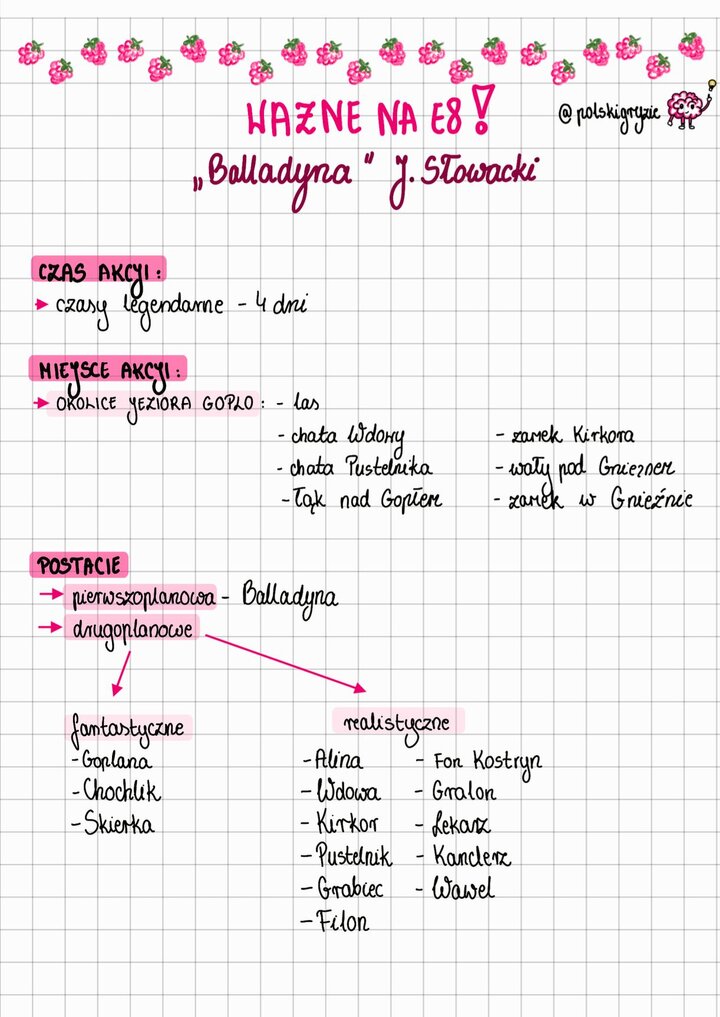 WAŻNE NA E8!
@polskigryzie
„Balladyna" J. Słowacki
CZAS AKCJI:
czasy legendarne - 4 dni
MIEJSCE AKCJI:
OKOLICE JEZIORA GOPŁO: - las
- chata Wdowy
- chata Pustelnika
- łąk nad Gopłem
- zamek Kirkora
- wały pod Gnieznem
- zamek w Gnieźnie
POSTACIE
pierwszoplanowa - Balladyna
drugoplanowe
fantastyczne
- Goplana
- Chochlik
- Skierka
realistyczne
- Alina
- Wdowa
- Kirkor
- Pustelnik
- Grabiec
- Filon
- Fon Kostryn
- Gralon
- Lekarz
- Kanclerz
- Wawel